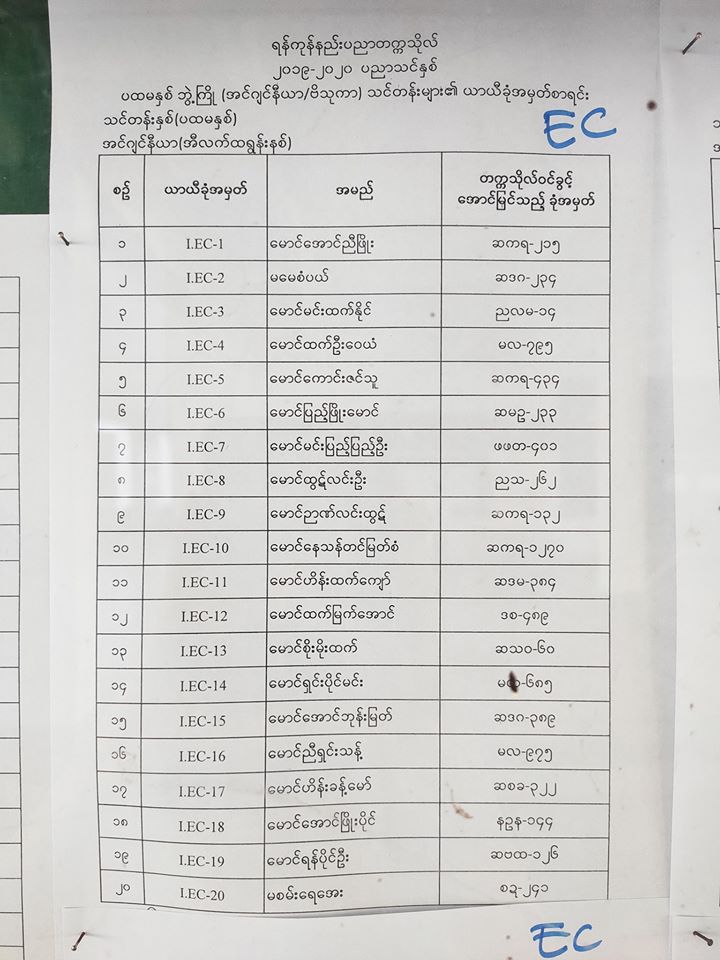 ရန်ကုန်နည်းပညာတက္ကသိုလ်
၂၀၁၉-၂၀၂၀ ပညာသင်နှစ်
ပထမနှစ် ဘွဲ့ကြို (အင်ဂျင်နီယာ/ဗိသုကာ) သင်တန်းများ၏ ယာယီခုံအမှတ်စာရင်း
သင်တန်းနှစ်(ပထမနှစ်)
EC
အင်ဂျင်နီယာ(အီလက်ထရွန်းနစ်)
စဉ် ယာယီခုံအမှတ် အမည် တက္ကသိုလ်ဝင်ခွင့် အောင်မြင်သည့် ခုံအမှတ်
၁ I.EC-1 မောင်အောင်ညီဖြိုး ဆကရ-၂၁၅
၂ I.EC-2 မမေစံပယ် ဆဒဂ-၂၃၄
၃ I.EC-3 မောင်မင်းထက်နိုင် ညလမ-၁၄
၄ I.EC-4 မောင်ထက်ဦးဝေယံ မလ-၇၉၅
၅ I.EC-5 မောင်ကောင်းဇင်သူ ဆကရ-၄၃၄
၆ I.EC-6 မောင်ပြည့်ဖြိုးမောင် ဆမဥ-၂၃၃
၇ I.EC-7 မောင်မင်းပြည့်ပြည့်ဦး ဖဖတ-၄၀၁
၈ I.EC-8 မောင်ထွဋ်လင်းဦး ညသ-၂၆၂
၉ I.EC-9 မောင်ဉာဏ်လင်းထွဋ် ဆကရ-၁၃၂
၁၀ I.EC-10 မောင်နေသန်တင်မြတ်စံ ဆကရ-၁၂၇၀
၁၁ I.EC-11 မောင်ဟိန်းထက်ကျော် ဆဒမ-၃၈၄
၁၂ I.EC-12 မောင်ထက်မြက်အောင် ဒစ-၄၈၉
၁၃ I.EC-13 မောင်စိုးမိုးထက် ဆသဝ-၆၀
၁၄ I.EC-14 မောင်ရှင်းပိုင်မင်း
၁၅ I.EC-15 မောင်အောင်ဘုန်းမြတ် ဆဒဂ-၃၈၉
၁၆ I.EC-16 မောင်ညီရှင်းသန့် မလ-၉၇၅
၁၇ I.EC-17 မောင်ဟိန်းခန့်မော် ဆစခ-၃၂၂
၁၈ I.EC-18 မောင်အောင်ဖြိုးပိုင် နဥန-၁၄၄
၁၉ I.EC-19 မောင်ရန်ပိုင်ဦး ဆဗထ-၁၂၆
၂၀ I.EC-20 မစမ်းရေအေး စဍ-၂၄၁
EC